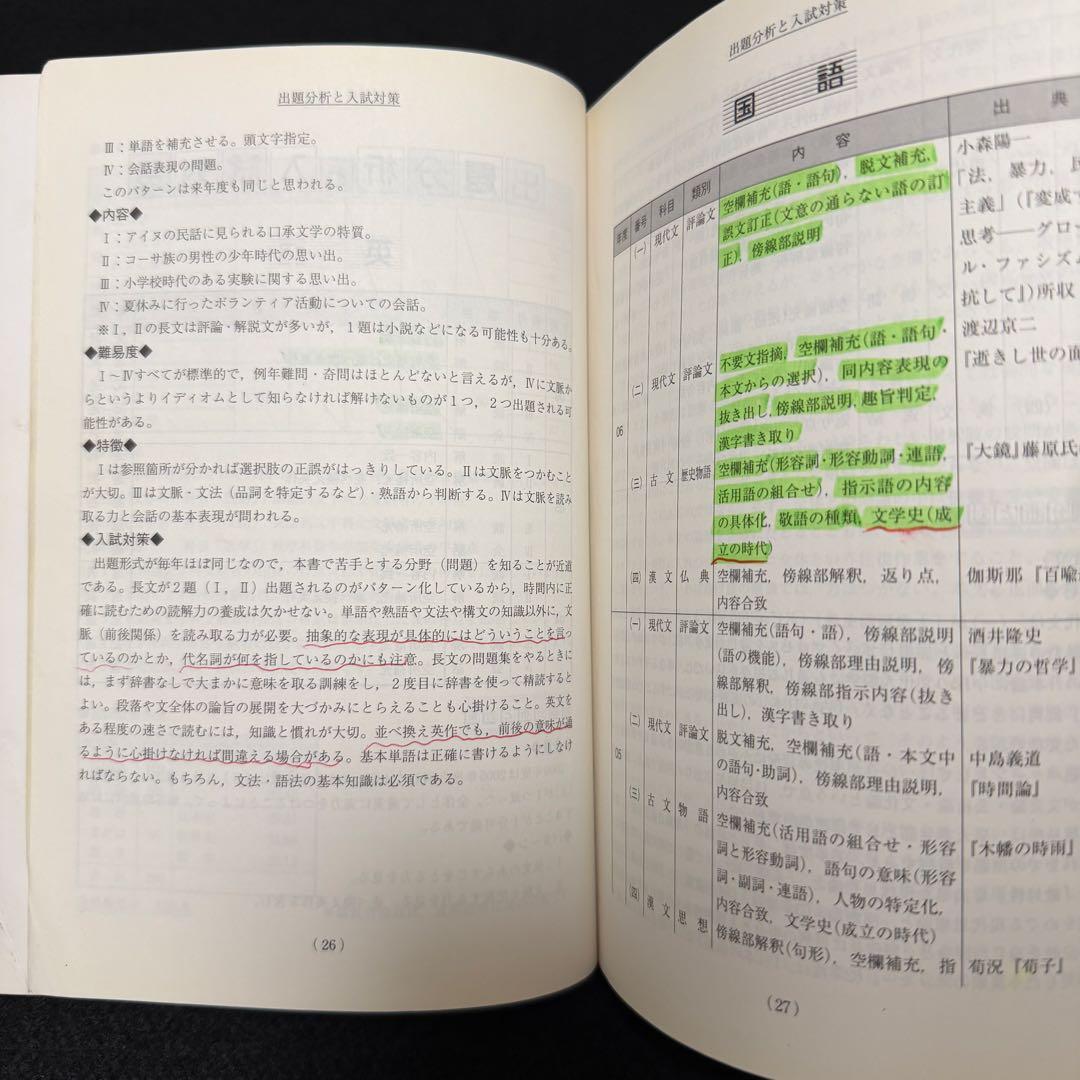 出題分析と入試対策
Ⅲ：単語を補充させる。頭文字指定。
Ⅳ：会話表現の問題。
このパターンは来年度も同じと思われる。
◆内容◆
Ⅰ：アイヌの民話に見られる口承文学の特質。
Ⅱ：コーサ族の男性の少年時代の思い出。
Ⅲ：小学校時代のある実験に関する思い出。
Ⅳ：夏休みに行ったボランティア活動についての会話。
※Ⅰ，Ⅱの長文は評論・解説文が多いが，１題は小説などになる可能性も十分ある。
◆難易度◆
Ⅰ〜Ⅳすべてが標準的で，例年難問・奇問はほとんどないと言えるが，Ⅳに文脈か
らというよりイディオムとして知らなければ解けないものが１つ，２つ出題される可
能性がある。
◆特徴◆
Ⅰは参照箇所が分かれば選択肢の正誤がはっきりしている。Ⅱは文脈をつかむこと
が大切。Ⅲは文脈・文法（品詞を特定するなど）・熟語から判断する。Ⅳは文脈を読み
取る力と会話の基本表現が問われる。
◆入試対策◆
出題形式が毎年ほぼ同じなので，本書で苦手とする分野（問題）を知ることが近道
である。長文が２題（Ⅰ，Ⅱ）出題されるのがパターン化しているから，時間内に正
確に読むための読解力の養成は欠かせない。単語や熟語や文法や構文の知識以外に，文
脈（前後関係）を読み取る力が必要。抽象的な表現が具体的にはどういうことを言っ
ているのかとか，代名詞が何を指しているのかにも注意。長文の問題集をやるときに
は，まず辞書なしで大まかに意味を取る訓練をし，２度目に辞書を使って精読すると
よい。段落や文全体の論旨の展開を大づかみにとらえることも心掛けること。英文を
ある程度の速さで読むには，知識と慣れが大切。並べ換え英作でも，前後の意味が通
るように心掛けなければ間違える場合がある。基本単語は正確に書けるようにしなけ
ればならない。もちろん，文法・語法の基本知識は必須である。
（26）
出題分析と入試対策
国語
年度 番号 科目 類別 内容 出典
06
（一） 現代文 評論文
空欄補充（語・語句），脱文補充，
誤文訂正（文意の通らない語の訂
正），傍線部説明
小森陽一
「法，暴力，民
主義」（『変成て
思考――グロー
ル・ファシズム
抗して』）所収
（二） 現代文 評論文
不要文指摘，空欄補充（語・語句・
本文からの選択），同内容表現の
抜き出し，傍線部説明，趣旨判定，
漢字書き取り
渡辺京二
『逝きし世の面
（三） 古文 歴史物語
空欄補充（形容詞・形容動詞・連語，
活用語の組合せ），指示語の内容
の具体化，敬語の種類，文学史（成
立の時代）
『大鏡』藤原氏
（四） 漢文 仏典
空欄補充，傍線部解釈，返り点，
内容合致
伽斯那『百喩
05
（一） 現代文 評論文
空欄補充（語句・語），傍線部説明
（語の機能），傍線部理由説明，傍
線部解釈，傍線部指示内容（抜き
出し），漢字書き取り
酒井隆史
『暴力の哲学』
（二） 現代文 評論文
脱文補充，空欄補充（語・本文中
の語句・助詞），傍線部理由説明，
内容合致
中島義道
『時間論』
（三） 古文 物語
空欄補充（活用語の組合せ・形容
詞と形容動詞），語句の意味（形容
詞・副詞・連語），人物の特定化，
内容合致，文学史（成立の時代）
『木幡の時雨』
（四） 漢文 思想
傍線部解釈（句形），空欄補充，指
荀況『荀子』
（27）